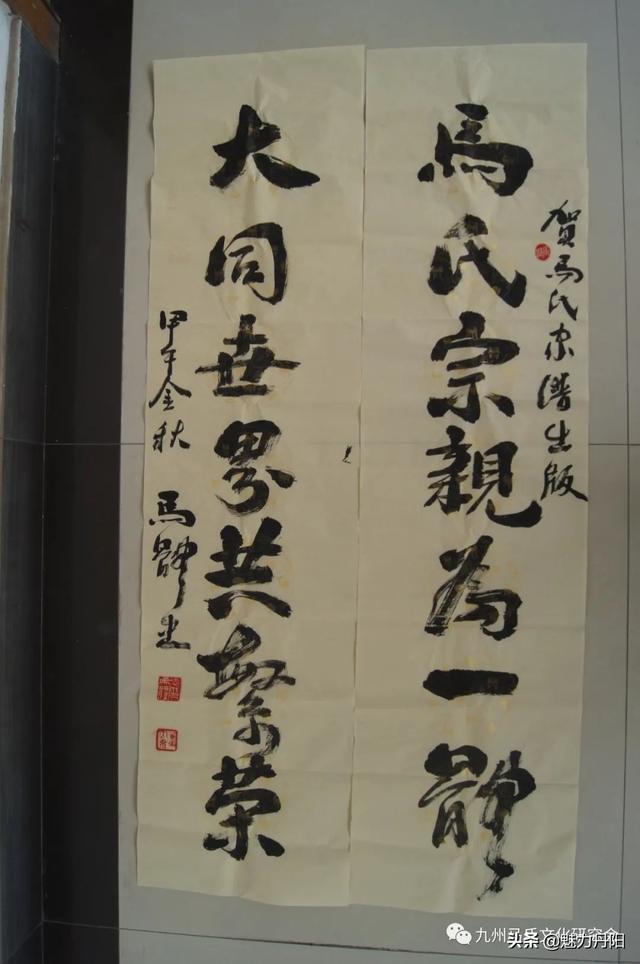 贺马氏宗谱出版
馬氏宗親為一體
大同世界共繁荣
甲午金秋 馬體
九州马氏文化研究会
头条 @魅力丹阳